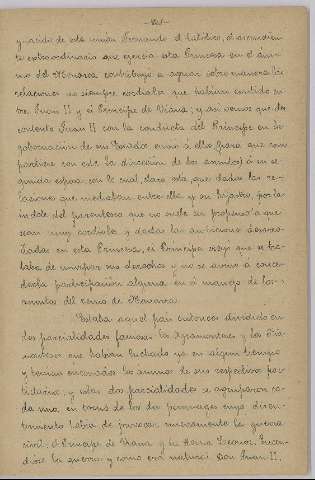 y nacido de esta unión Fernando el Católico, el ascendien-
te extraordinario que ejercía esta Princesa en el áni-
mo del Monarca contribuyó a agriar sobre manera las
relaciones no siempre cordiales que habían existido en-
tre Juan II y el Príncipe de Viana; y así vemos que des-
contento Juan II con la conducta del Príncipe en la
gobernación de sus Estados envió a ella, (para que com-
partiera con este la dirección de los asuntos) á su se-
gunda esposa, con lo cual, claro está, que dadas las re-
laciones que mediaban entre ella y su hijastro, por la
índole del parentesco que no suele ser propenso a que
sean muy cordiales y dadas las ambiciones desarro-
lladas en esta Princesa, el Príncipe creyó que se tra-
taba de usurpar sus derechos y no se avino á conce-
derla participación alguna en el manejo de los a-
suntos del reino de Navarra.
Estaba aquel país entonces dividido en
dos parcialidades famosas los Agramonteses y los Bia-
monteses que habían luchado ya en algún tiempo
y tenían enconados los ánimos de sus respectivos par-
tidarios; y estas dos parcialidades se agruparon ca-
da una, en torno de los dos personages cuyo discen-
timiento había de provocar nuevamente la guerra
civil: el Príncipe de Viana y la Reina
dióse la guerra y como era natural Don Juan II,